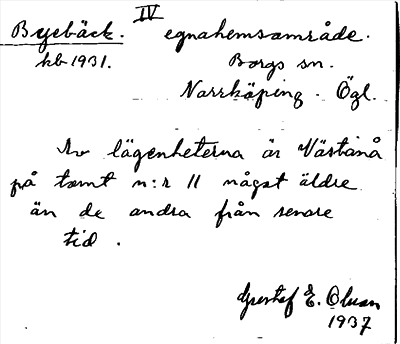 IV
Byebäck. egnahemsområde.
kb 1931. Borgs sn.
Norrköping. Ögl.
Av lägenheterna är Västanå
på tomt n:r 11 något äldre
än de andra från senare
tid.
Gustaf E. Olsson
1937